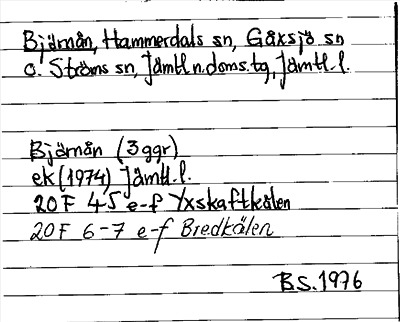 Bjärnån, Hammerdals sn, Gåxsjö sn
o. Ströms sn, Jämtl. n. doms. tg, Jämtl. l.
Bjärnån (3 ggr)
ek (1974) Jämtl. l.
20 F 4-5 e-f Yxskaftkälen
20 F 6-7 e-f Bredkälen
B.S. 1976